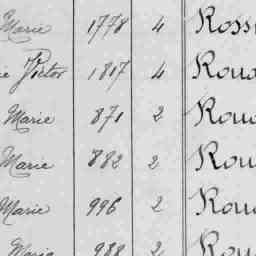 Marie 1778 4 Ross
ie Victor 1817 4 Rou
Marie 871 2 Rou
Marie 882 2 Rou
Marie 996 2 Rou
Marie 988 2 Rou